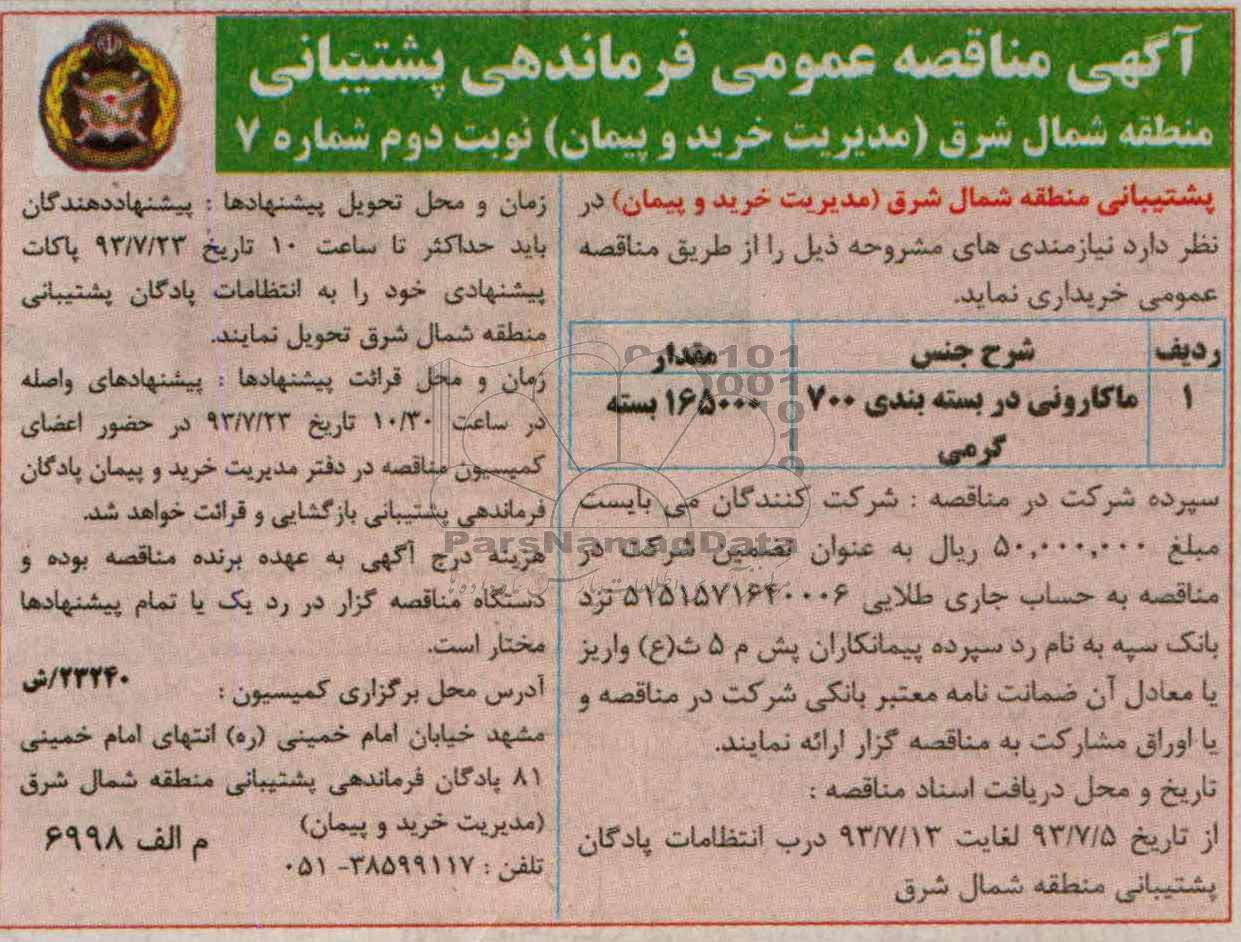 آگهی مناقصه عمومی فرماندهی پشتیبانی
منطقه شمال شرق (مدیریت خرید و پیمان) نوبت دوم شماره ۷
پشتیبانی منطقه شمال شرق (مدیریت خرید و پیمان) در
نظر دارد نیازمندی های مشروحه ذیل را از طریق مناقصه
عمومی خریداری نماید.
ردیف شرح جنس مقدار
۱ ماکارونی در بسته بندی ۷۰۰ ۱۶۵۰۰۰ بسته
گرمی
سپرده شرکت در مناقصه : شرکت کنندگان می بایست
مبلغ ۵۰,۰۰۰,۰۰۰ ریال به عنوان تضمین شرکت در
مناقصه به حساب جاری طلایی ۵۱۵۱۵۷۱۶۴۰۰۰۶ نزد
بانک سپه به نام رد سپرده پیمانکاران پش م ۵ ث(ع) واریز
یا معادل آن ضمانت نامه معتبر بانکی شرکت در مناقصه و
یا اوراق مشارکت به مناقصه گزار ارائه نمایند.
تاریخ و محل دریافت اسناد مناقصه :
از تاریخ ۹۳/۷/۵ لغایت ۹۳/۷/۱۳ درب انتظامات پادگان
پشتیبانی منطقه شمال شرق
زمان و محل تحویل پیشنهادها : پیشنهاددهندگان
باید حداکثر تا ساعت ۱۰ تاریخ ۹۳/۷/۲۳ پاکات
پیشنهادی خود را به انتظامات پادگان پشتیبانی
منطقه شمال شرق تحویل نمایند.
زمان و محل قرائت پیشنهادها : پیشنهادهای واصله
در ساعت ۱۰/۳۰ تاریخ ۹۳/۷/۲۳ در حضور اعضای
کمیسیون مناقصه در دفتر مدیریت خرید و پیمان پادگان
فرماندهی پشتیبانی بازگشایی و قرائت خواهد شد.
هزینه درج آگهی به عهده برنده مناقصه بوده و
دستگاه مناقصه گزار در رد یک یا تمام پیشنهادها
مختار است.
۲۳۲۴۰/ش
آدرس محل برگزاری کمیسیون :
مشهد خیابان امام خمینی (ره) انتهای امام خمینی
۸۱ پادگان فرماندهی پشتیبانی منطقه شمال شرق
(مدیریت خرید و پیمان)
تلفن : ۳۸۵۹۹۱۱۷- ۰۵۱
م الف ۶۹۹۸
ParsNamadData